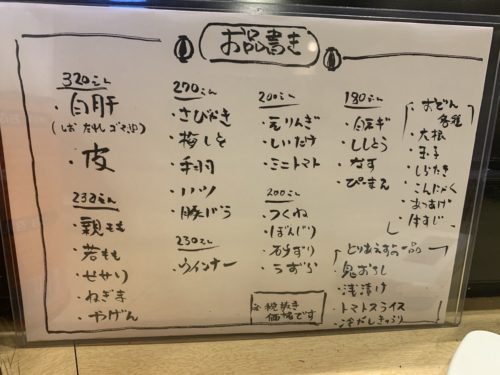 お品書き
320えん
・白肝
(しお たれ ゴマ油)
・皮
232えん
・親もも
・若もも
・せせり
・ねぎま
・やげん
270えん
・さびやき
・梅しそ
・手羽
・ハツ
・豚バラ
230えん
・ウインナー
200えん
・えりんぎ
・しいたけ
・ミニトマト
200えん
・つくね
・ぼんじり
・砂ずり
・うずら
※税抜き
価格です
180えん
・白ネギ
・ししとう
・なす
・ぴーまん
おでん
各種
・大根
・玉子
・しらたき
・こんにゃく
・あつあげ
・牛すじ
とりあえずの一品
・鬼おろし
・浅漬け
・トマトスライス
・冷だしきゅうり